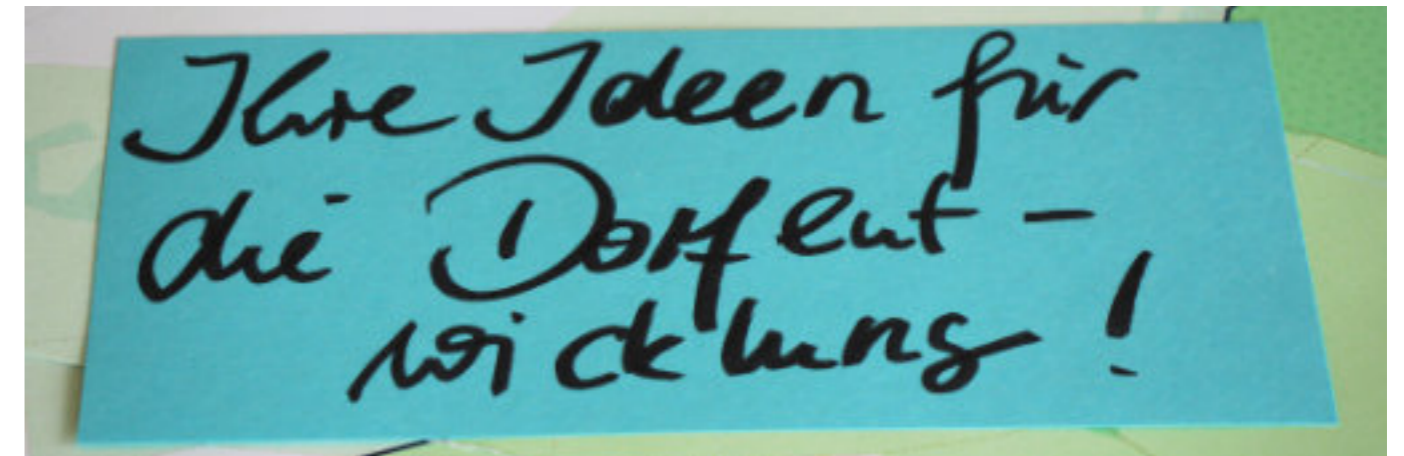 Ihre Ideen für
die Dorfent-
wicklung!